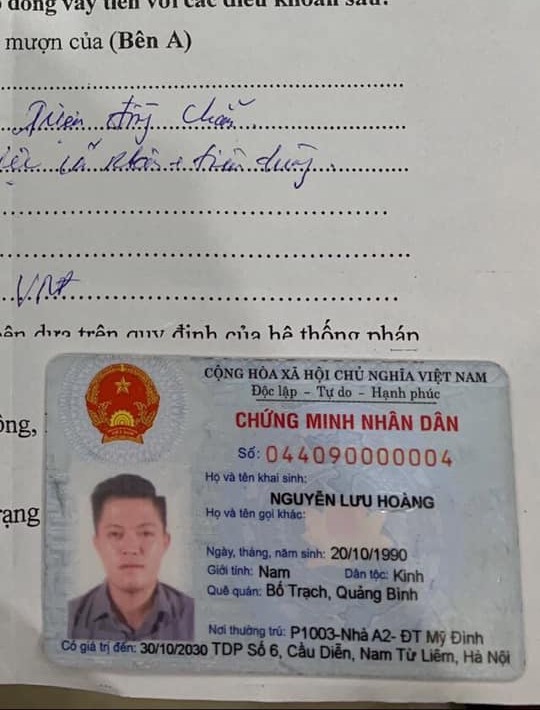 đồng vay tiền với các điều khoản sau:
mượn của (Bên A)
triệu đồng chẵn
cá nhân + tiêu dùng
VNĐ
dựa trên quy định của hệ thống pháp
ông,
rạng
CỘNG HÒA XÃ HỘI CHỦ NGHĨA VIỆT NAM
Độc lập - Tự do - Hạnh phúc
CHỨNG MINH NHÂN DÂN
Số: 044090000004
Họ và tên khai sinh:
NGUYỄN LƯU HOÀNG
Họ và tên gọi khác:
Ngày, tháng, năm sinh: 20/10/1990
Giới tính: Nam Dân tộc: Kinh
Quê quán: Bố Trạch, Quảng Bình
Nơi thường trú: P1003-Nhà A2- ĐT Mỹ Đình
Có giá trị đến: 30/10/2030 TDP Số 6, Cầu Diễn, Nam Từ Liêm, Hà Nội